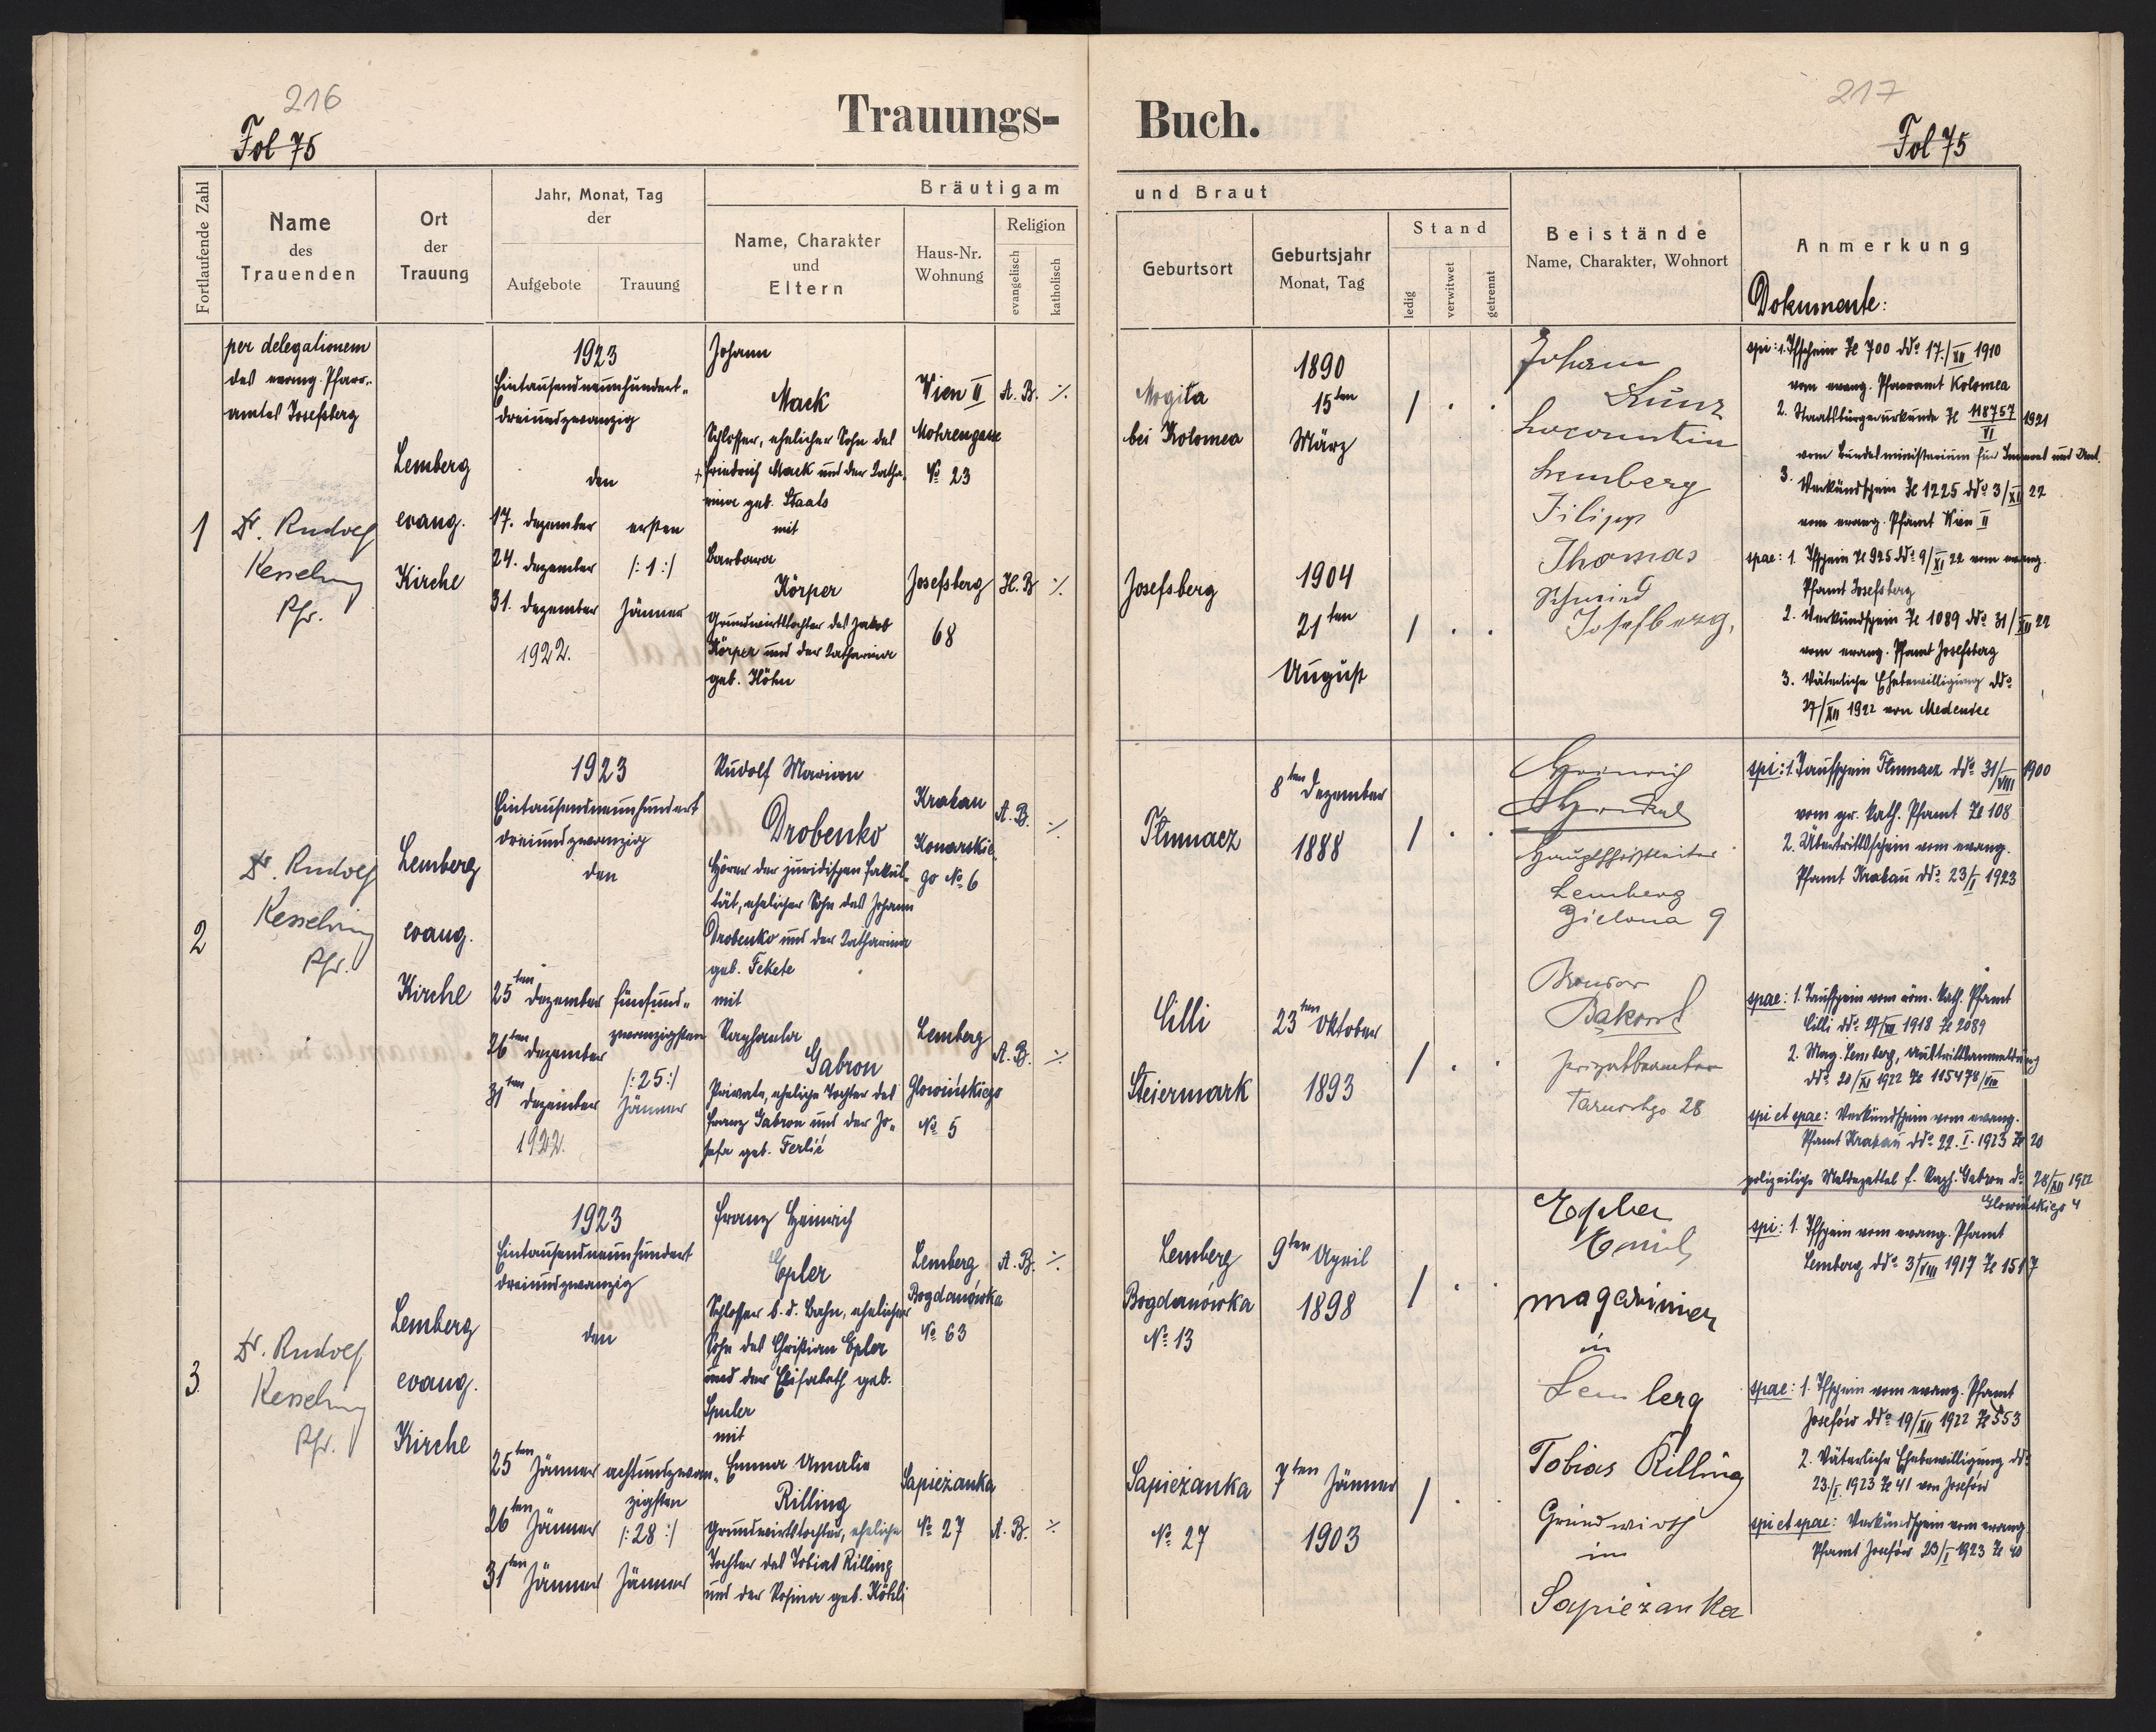 216
Fol 75
Trauungs-
Fortlaufende Zahl
Name
des
Trauenden
Ort
der
Trauung
Jahr, Monat, Tag
der
Aufgebote
Trauung
Bräutigam
Name, Charakter
und
Eltern
Haus-Nr.
Wohnung
Religion
evangelisch
katholisch
1
per delegationem
des evang. Pfarr-
amtes Josefsberg
Dr. Rudolf
Kesselring
Pfr.
Lemberg
evang.
Kirche
1923
Eintausendneunhundert-
dreiundzwanzig
den
17. Dezember
24. Dezember
31. Dezember
1922.
ersten
/:1:/
Jänner
Johann
Mack
Schlosser, ehelicher Sohn des
Friedrich Mack und der Katha-
rina geb. Staals
mit
Barbara
Körper
Grundwirtstochter des Jakob
Körper und der Katharina
geb. Höhn
Wien II
Mohrengasse
No 23
Josefsberg
68
A. B. ./.
H. B. ./.
2
Dr. Rudolf
Kesselring
Pfr.
Lemberg
evang.
Kirche
1923
Eintausendneunhundert
dreiundzwanzig
den
25ten Dezember
26ten Dezember
31ten Dezember
1922.
fünfund-
zwanzigsten
/:25:/
Jänner
Rudolf Marian
Drobenko
Hörer der juridischen Fakul-
tät, ehelicher Sohn des Johann
Drobenko und der Katharina
geb. Fekete
mit
Raphaela
Gabron
Private, eheliche Tochter des
Franz Gabron und der Jo-
sefa geb. Ferlič
Krakau
Konarskie-
go No 6
Lemberg
Głowińskiego
No 5
A. B. ./.
A. B. ./.
3
Dr. Rudolf
Kesselring
Pfr.
Lemberg
evang.
Kirche
1923
Eintausendneunhundert
dreiundzwanzig
den
25ten Jänner
26ten Jänner
31ten Jänner
achtundzwan-
zigsten
/:28:/
Jänner
Franz Heinrich
Epler
Schlosser b. d. Bahn, ehelicher
Sohn des Christian Epler
und der Elisabeth geb.
Spuler
mit
Emma Amalie
Rilling
Grundwirtstochter, eheliche
Tochter des Tobias Rilling
und der Rosina geb. Köhli
Lemberg
Bogdanówka
No 63
Sapieżanka
No 27
A. B. ./.
A. B. ./.
217
Fol 75
Buch.
und Braut
Geburtsort
Geburtsjahr
Monat, Tag
Stand
ledig
verwitwet
getrennt
Beistände
Name, Charakter, Wohnort
Anmerkung
Dokumente:
Mogiła
bei Kolomea
1890
15ten
März
Josefsberg
1904
21ten
August
Johann
Kunz
Lemberg
Filipp
Thomas
Schmied
Josefsberg.
spi: 1. Tfschein Zl 700 ddo 17./XII 1910
vom evang. Pfarramt Kolomea
2. Staatsbürgerurkunde Zl 118757/VI 1921
vom Bundesministerium für Inneres und Unt.
3. Verkündschein Zl 1225 ddo 3/XI 22
vom evang. Pfamt Wien II
spae: 1. Tfschein Zl 925 ddo 9/XI 22 vom evang.
Pfamt Josefsberg
2. Verkündschein Zl 1089 ddo 31/XII 22
vom evang. Pfamt Josefsberg
3. Väterliche Ehebewilligung ddo
27/XII 1922 von Medenice
Tłumacz
8ten Dezember
1888
Cilli
Steiermark
23ten Oktober
1893
Heinrich
Hauptschriftleiter
Lemberg
Zielona 9
Privatbeamter
28
spi: 1. Taufschein Tłumacz ddo 31/VIII 1900
vom gr. kath. Pfamt Zl 108
2. Übertrittsschein vom evang.
Pfamt Krakau ddo 23/I 1923
spae: 1. Taufschein vom röm. kath. Pfamt
Cilli ddo 27/III 1918 Zl 2089
2. Mag. Lemberg, Austrittsanmeldung
ddo 20/XI 1922 Zl 115478/VIII
spi et spae: Verkündschein vom evang.
Pfamt Krakau ddo 22. I. 1923 Zl 20
polizeilicher Meldezettel f. Raph. Gabron do 28/XII 1922
Głowińskiego 4
Lemberg
Bogdanówka
No 13
9ten April
1898
Sapieżanka
No 27
7ten Jänner
1903
Epler
Emil
magazinier
in
Lemberg
Tobias Rilling
Grundwirth
in
Sapieżanka
spi: 1. Tfschein vom evang. Pfamt
Lemberg ddo 3/VIII 1917 Zl 1517
spae: 1. Tfschein vom evang. Pfamt
Josefów ddo 19/XII 1922 Zl 553
2. Väterliche Ehebewilligung ddo
23./I. 1923 Zl 41 von Josefów
spi et spae: Verkündschein vom evang.
Pfamt Josefów 23/I 1923 Zl 40